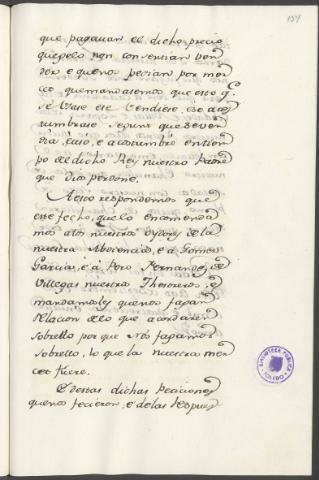 que pagauan el dicho precio
que gelo non consentian ven
der e que nos pedian por mer
çed que mandasemos que esto q.
se Vsase ese Vendiese, ese acos
tumbrase segunt que se ven
dia, e uso, e acostumbró en tiem
po el dicho Rey nuestro Padre
que Dios perdone.
A esto respondemos que
este fecho, que lo encomenda
mos a los nuestros oydores de la
nuestra Abdiencia, e a Gomes
Garcia, e a Pero Fernandez de
Villegas nuestro Thesorero, e
mandamosles que nos fagan
relacion de lo que acordaren
sobrello por que Nos fagamos
sobrello, lo que la nuestra mer
cet fuere.
E destas dichas Peticiones
que nos fecieron, e de las respues
BIBLIOTECA PUBLICA
TOLEDO